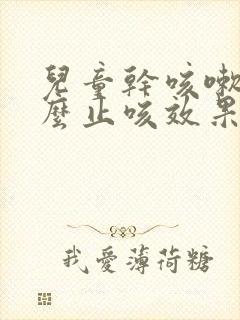 兒童幹咳嗽
麼止咳效果
我愛薄荷糖